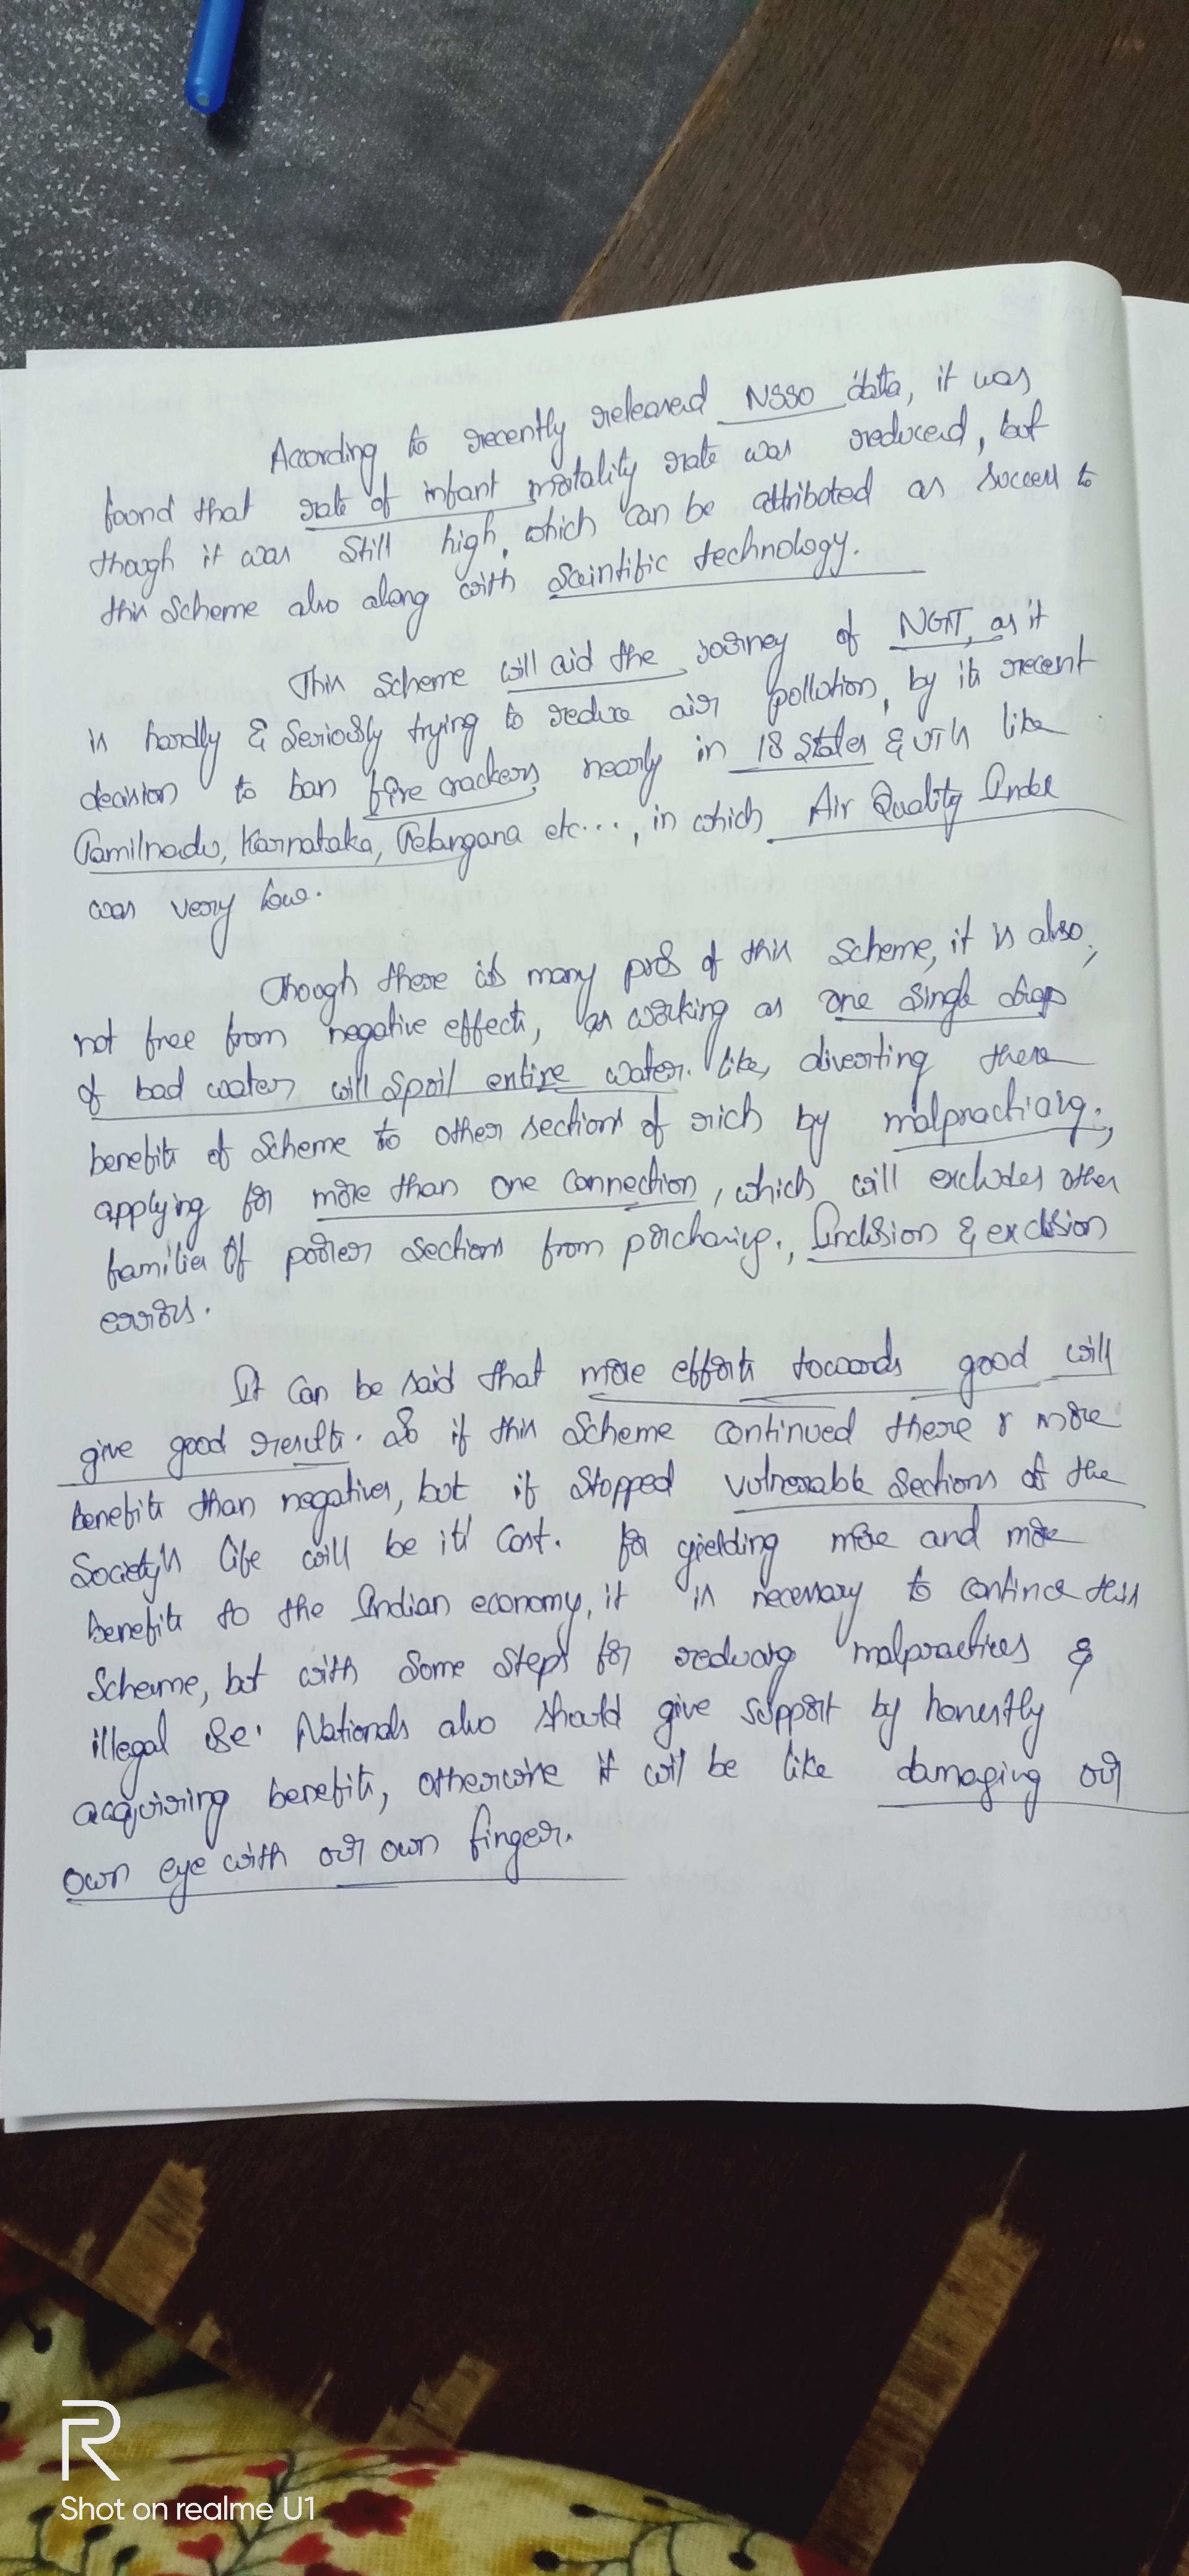 According to recently released NSSO data, it was
found that rate of infant mortality rate was reduced, but
though it was still high, which can be attributed as success to
this scheme also along with scintific technology.
This scheme will aid the journey of NGT, as it
is hardly & seriously trying to reduce air pollution, by its recent
decision to ban fire crackers nearly in 18 states & UT's like
Tamilnadu, Karnataka, Telangana etc..., in which Air Quality Index
was very low.
Though there is many pros of this scheme, it is also,
not free from negative effects, as working as one single drop
of bad water will spoil entire water. like, diverting these
benefits of scheme to other sections of rich by malpracticing.,
applying for more than one connection, which will excludes other
families of poorer sections from purchasing., Inclusion & exclusion
errors.
It can be said that more efforts towards good will
give good results. So if this scheme continued there r more
benefits than negatives, but if stopped vulnerable sections of the
society's life will be it's cost. for yielding more and more
benefits to the Indian economy, it is necessary to continue this
scheme, but with some steps for reducing malpractices &
illegal use. Nationals also should give support by honestly
acquiring benefits, otherwise it will be like damaging our
own eye with our own finger.
R
Shot on realme U1